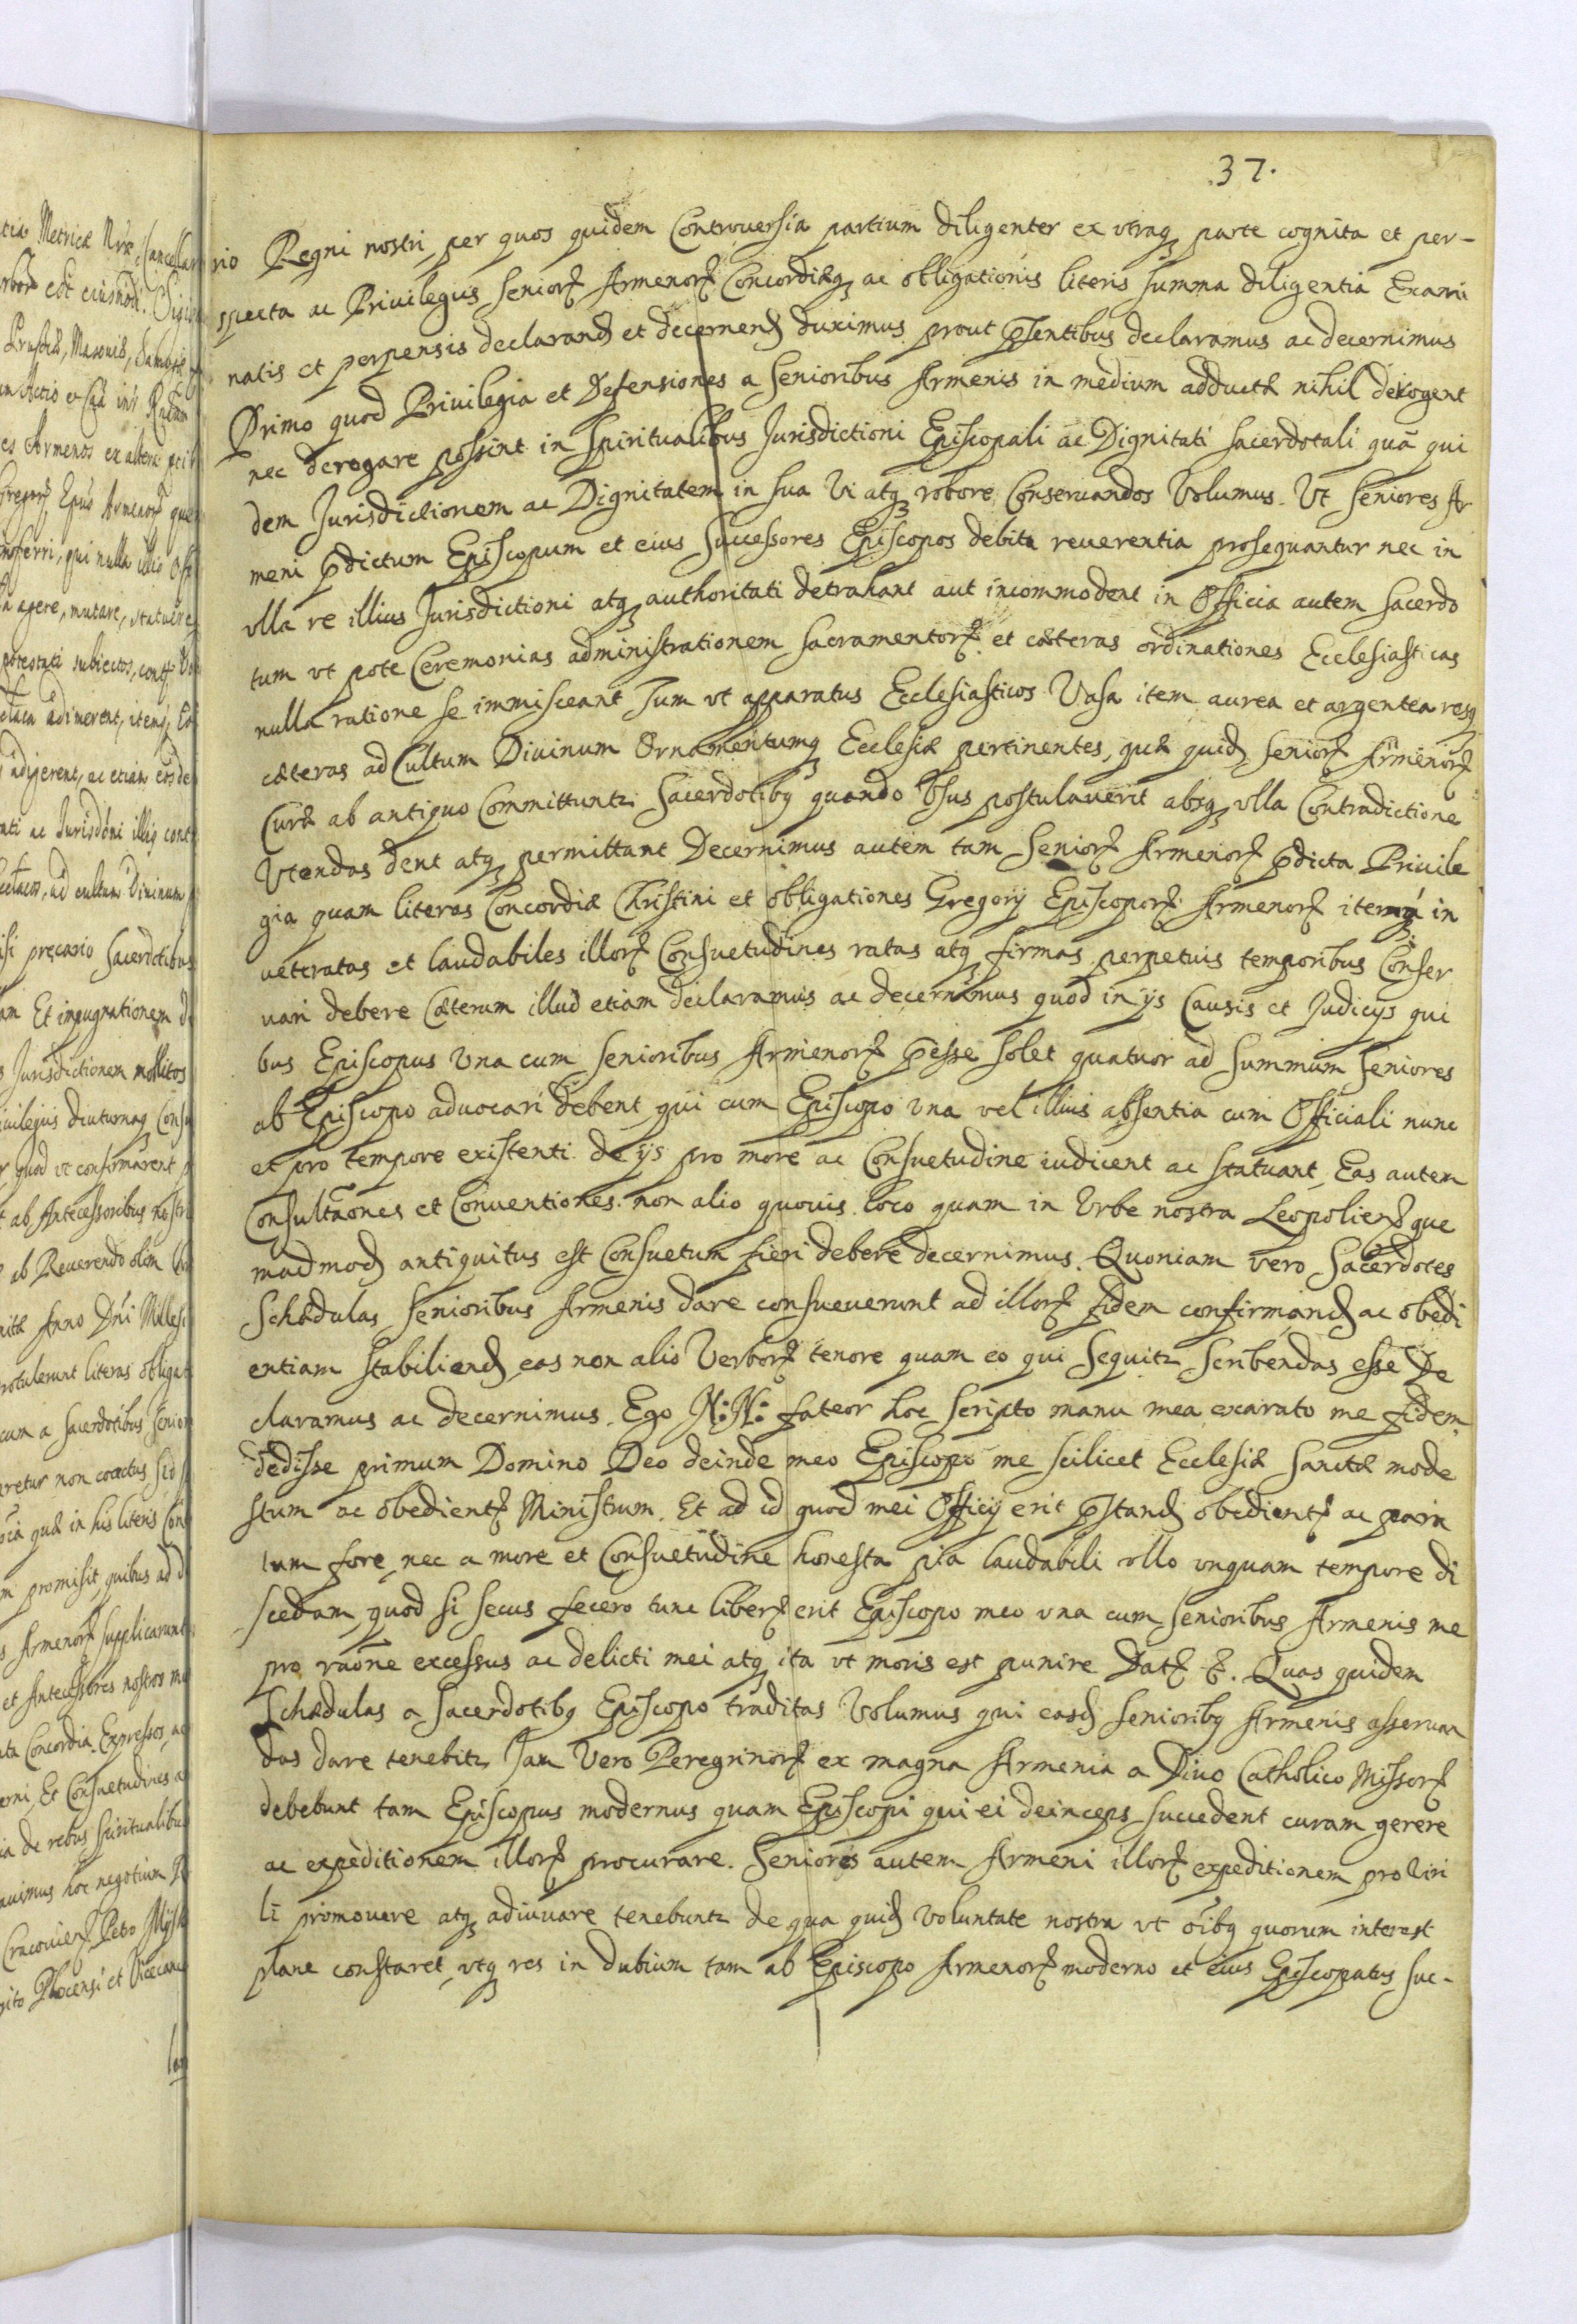 37.
rio Regni nostri per quos quidem Controuersia partium diligenter ex vtraq₃ parte cognita et per-
specta ac Priuilegijs Seniorꝝ Armenorꝝ Concordiæq₃ ac obligationis literis summa diligentia Exami
natis et perpensis declarandꝫ et decernendꝫ duximus prout p̄sentibus declaramus ac decernimus
Primo quod Priuilegia et Defensiones a Senioribus Armenis in medium adductæ nihil derogent
nec derogare possint in Spiritualibus Jurisdictioni Episcopali ac Dignitati Sacerdotali quā qui
dem Jurisdictionem ac Dignitatem in sua Vi atq₃ robore Conseruandos Volumus. Vt Seniores Ar
meni p̄dictum Episcopum et eius Successores Episcopos debita reuerentia prosequantur nec in
vlla re illius Jurisdictioni atq₃ authoritati detrahant aut incommodent in Officia autem Sacerdo
tum vt pote Ceremonias administrationem Sacramentorꝝ et cæteras ordinationes Ecclesiasticas
nulla ratione se immisceant Tum vt apparatus Ecclesiasticos Vasa item aurea et argentea resq₃
cæteras ad Cultum Diuinum Ornamentumq₃ Ecclesiæ pertinentes, quæ quidꝫ Seniorꝝ Armenorꝝ
Curæ ab antiquo Committuntꝛ Sacerdotibꝯ quando Vsus postulauerit absq₃ vlla Contradictione
Vtendas dent atq₃ permittant Decernimus autem tam Seniorꝝ Armenorꝝ p̄dicta Priuile
gia quam literas Concordiæ Christini et obligationes Gregorij Episcoporꝝ Armenorꝝ itemq₃ in
ueteratas et laudabiles illorꝝ Consuetudines ratas atq₃ firmas perpetuis temporibus Conser
uari debere Cæterum illud etiam declaramus ac decernimus quod in ijs Causis et Judicijs qui
bus Episcopus Vna cum Senioribus Armenorꝝ p̄esse solet quatuor ad summum Seniores
ab Episcopo aduocari debent qui cum Episcopo vna vel illius absentia cum Officiali nunc
et pro tempore existenti de ijs pro more ac Consuetudine iudicent ac statuant, Eas autem
Consultāones et Conuentiones non alio quouis loco quam in Vrbe nostra Leopoliensꝫ que
madmodꝫ antiquitus est Consuetum fieri debere decernimus. Quoniam vero Sacerdotes
Schædulas Senioribus Armenis dare consueuerunt ad illorꝝ fidem confirmandꝫ ac obedi
entiam stabiliendꝫ eas non alio Verborꝝ tenore quam eo qui Sequitꝛ Scribendas esse De
claramus ac decernimus. Ego N: N: fateor hoc Scripto manu mea exarato me fidem
dedisse primum Domino Deo deinde meo Episcopo me scilicet Ecclesiæ Sanctæ mode
stum ac obedientꝫ Ministrum. Et ad id quod mei Officij erit p̄standꝫ obedientꝫ ac para
tum fore, nec a more et Consuetudine honesta pia laudabili vllo vnquam tempore di
scedam, quod si secus fecero tunc liberꝝ erit Episcopo meo vna cum Senioribus Armenis me
pro raōne excessus ac delicti mei atq₃ ita vt moris est punire Datꝫ &. Quas quidem
Schædulas a Sacerdotibꝯ Episcopo traditas Volumus qui easdꝫ Senioribꝯ Armenis asseruan
das dare tenebitꝛ Jam Vero Peregrinorꝝ ex magna Armenia a Diuo Catholico Missorꝝ
debebunt tam Episcopus modernus quam Episcopi qui ei deinceps succedent curam gerere
ac expeditionem illorꝝ procurare. Seniores autem Armeni illorꝝ expeditionem pro Viri
li promouere atq₃ adiuuare tenebuntꝛ de qua quidꝫ Voluntate nostra vt oībꝯ quorum interest
plane constaret vtq₃ res in dubium tam ab Episcopo Armenorꝝ moderno et eius Episcopatus suc-